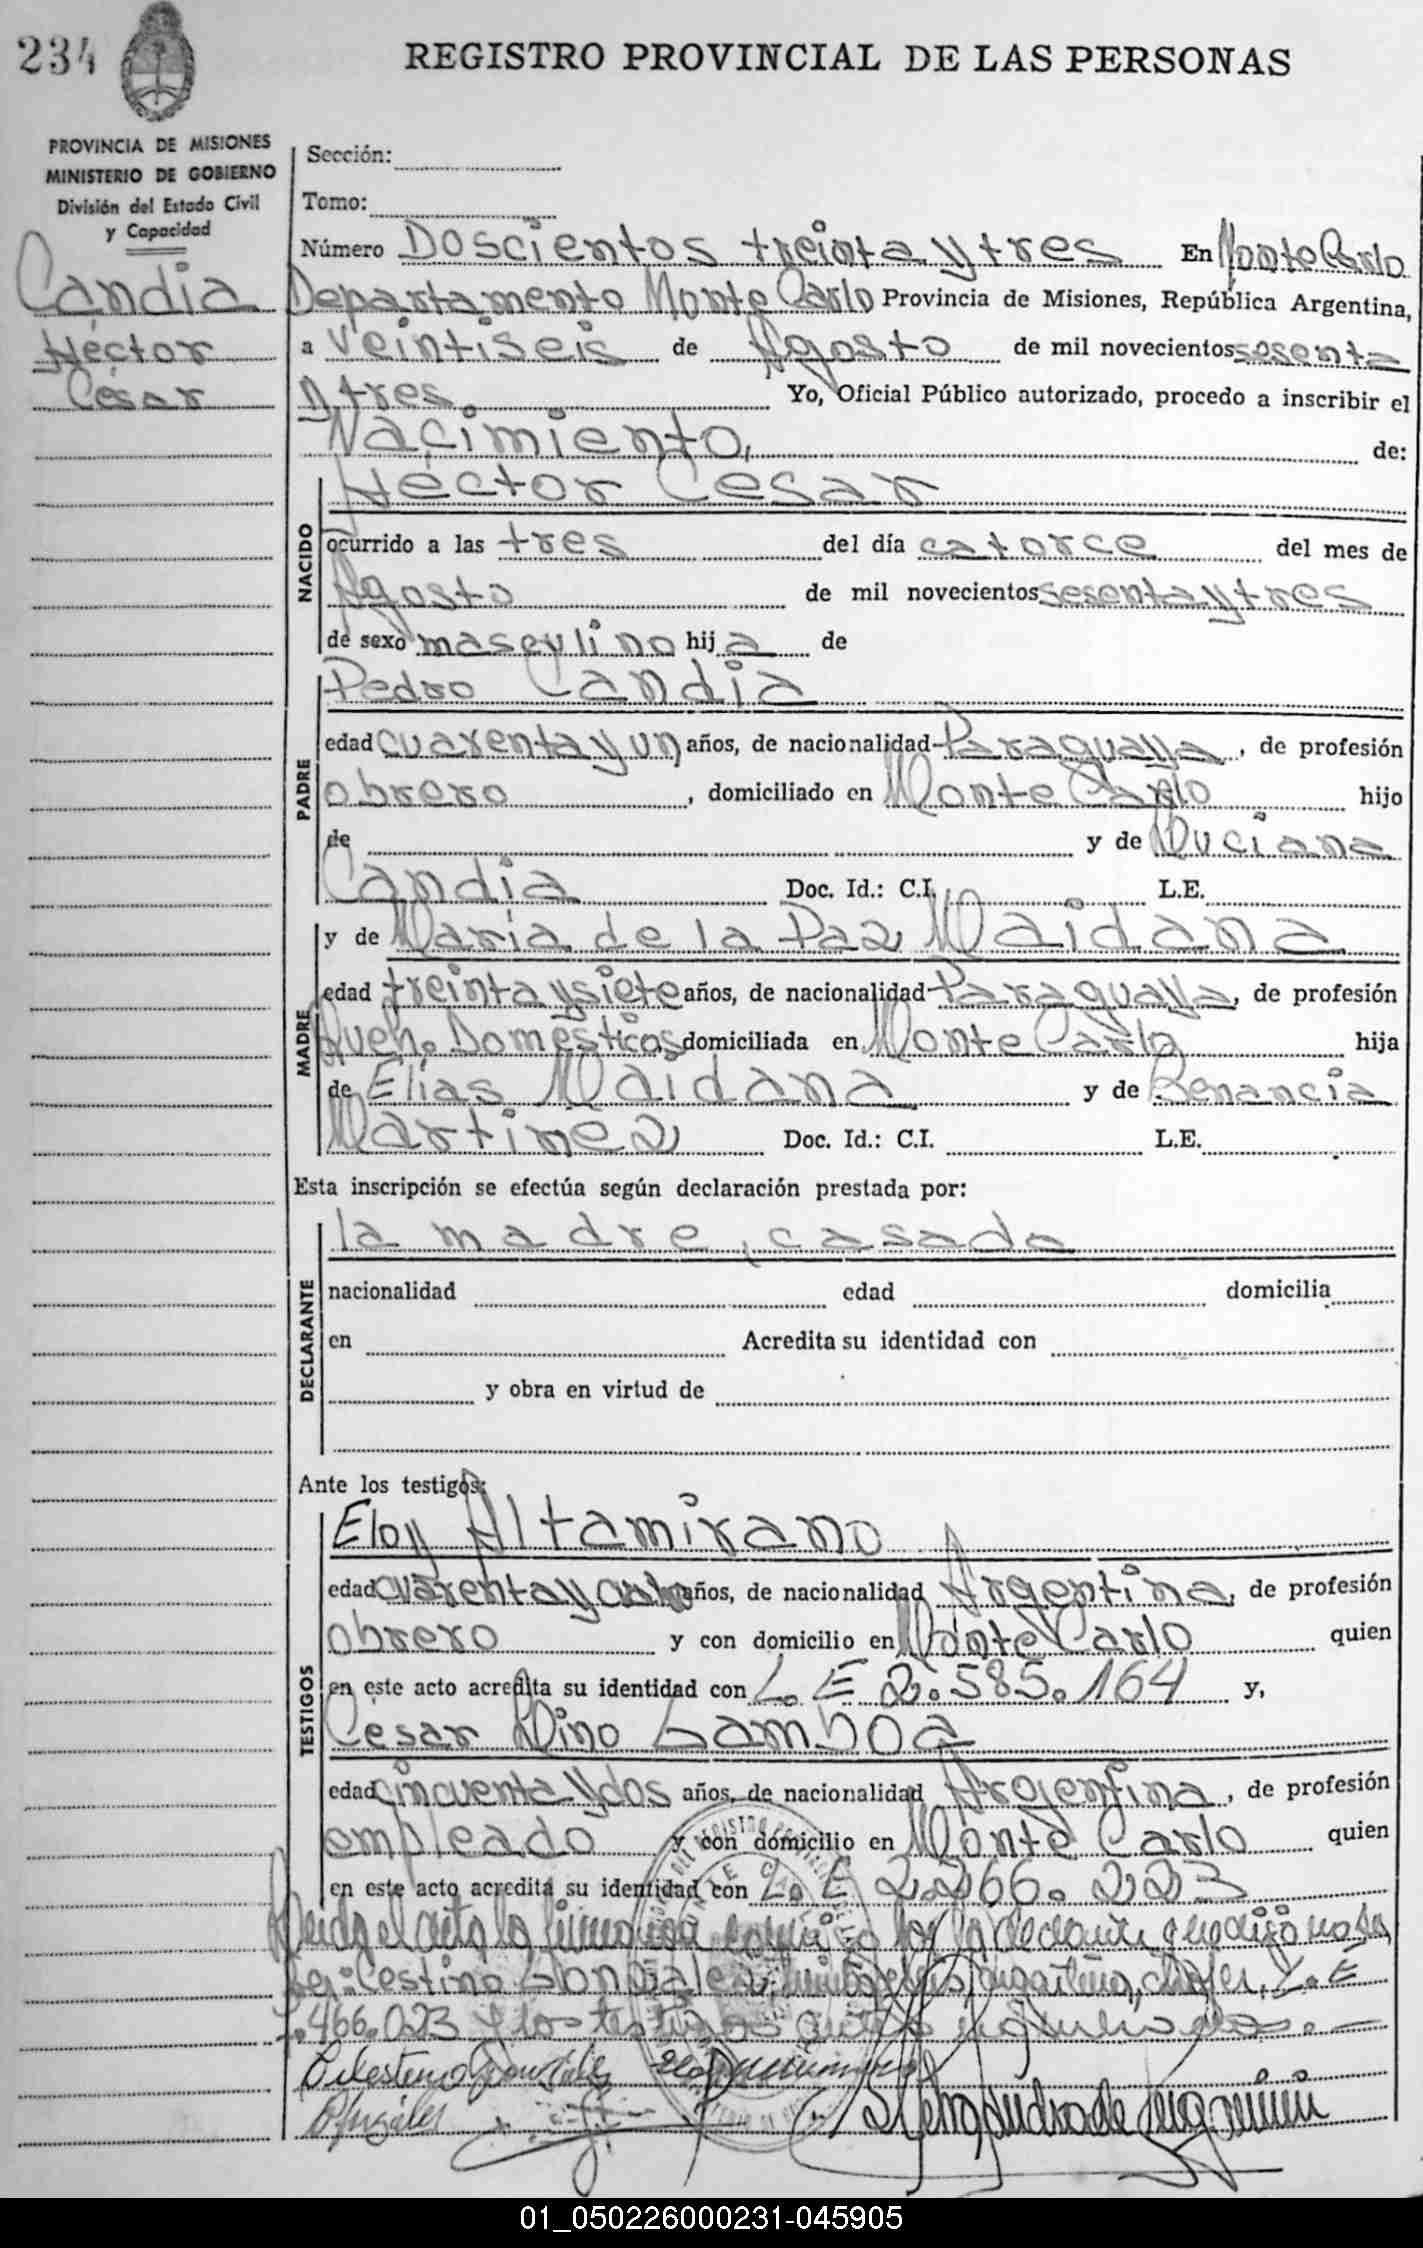 234
REGISTRO PROVINCIAL DE LAS PERSONAS
PROVINCIA DE MISIONES
MINISTERIO DE GOBIERNO
División del Estado Civil
y Capacidad
Candia
Héctor
César
Sección:
Tomo:
Número Doscientos treinta y tres En Monte Carlo
Departamento Monte Carlo Provincia de Misiones, República Argentina,
a veintiseis de Agosto de mil novecientos sesenta
y tres. Yo, Oficial Público autorizado, procedo a inscribir el
Nacimiento, de:
NACIDO
Héctor César
ocurrido a las tres del día catorce del mes de
Agosto de mil novecientos sesenta y tres
de sexo masculino hij a de
PADRE
Pedro Candia
edad cuarenta y un años, de nacionalidad Paraguaya, de profesión
obrero, domiciliado en Monte Carlo hijo
de y de Muciana
Candia Doc. Id.: C.I. L.E.
MADRE
y de María de la Paz Maidana
edad treinta y siete años, de nacionalidad Paraguaya, de profesión
Queh. Domésticos domiciliada en Monte Carlo hija
de Elías Maidana y de Benancia
Martínez Doc. Id.: C.I. L.E.
Esta inscripción se efectúa según declaración prestada por:
DECLARANTE
la madre, casada
nacionalidad edad domicilia
en Acredita su identidad con
y obra en virtud de
Ante los testigos:
TESTIGOS
Eloy Altamirano
edad cuarenta y años, de nacionalidad Argentina, de profesión
obrero y con domicilio en Monte Carlo quien
en este acto acredita su identidad con L. E 2.585.164 y,
César Dino Gamboa
edad cincuenta y dos años, de nacionalidad Argentina, de profesión
empleado y con domicilio en Monte Carlo quien
en este acto acredita su identidad con L. E 2.266.223
Leida el acta la por la que dijo no
Celestino Gonzalez, chofer, L. E
7.466.023 y los testigos
01_050226000231-045905